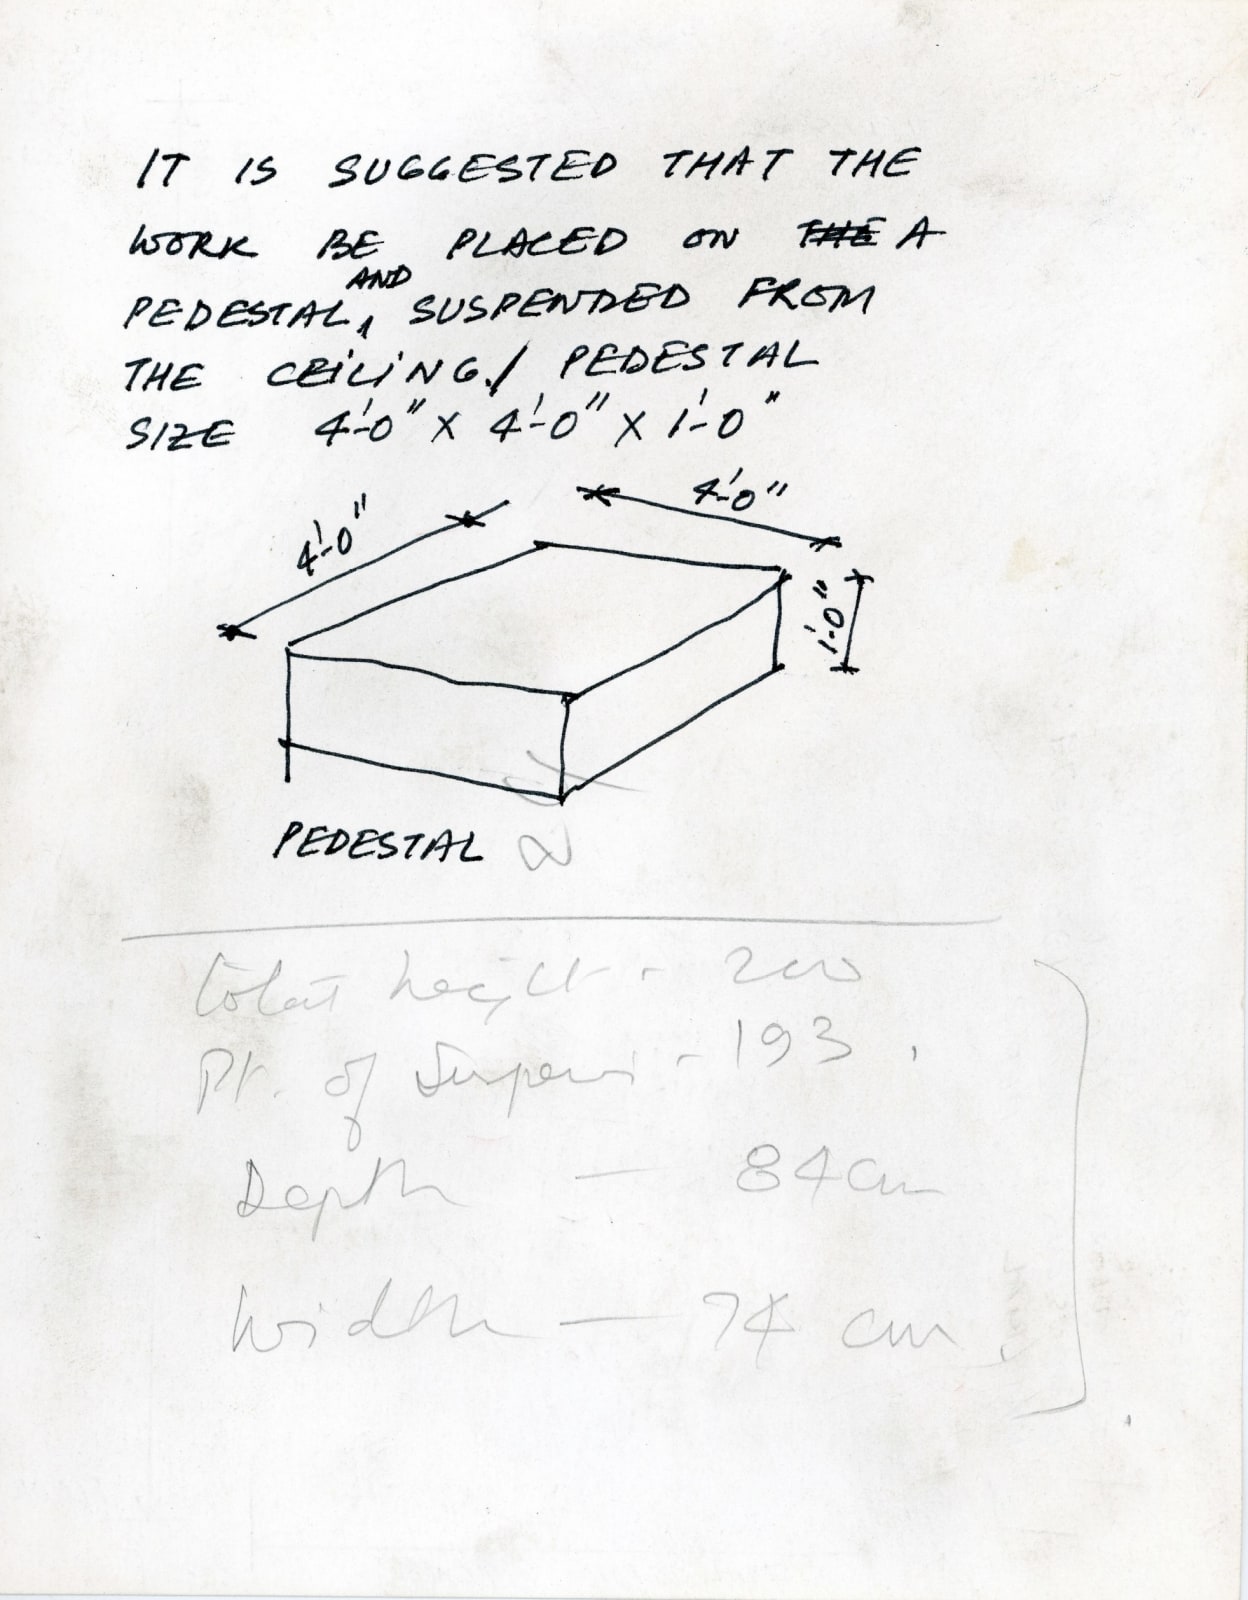 IT IS SUGGESTED THAT THE
WORK BE PLACED ON THE A
PEDESTAL, AND SUSPENDED FROM
THE CEILING. / PEDESTAL
SIZE 4'-0" X 4'-0" X 1'-0"
4'-0"
4'-0"
1'-0"
PEDESTAL
total height - 200
Pt. of - 193.
Depth — 84 cm
Width — 74 cm.